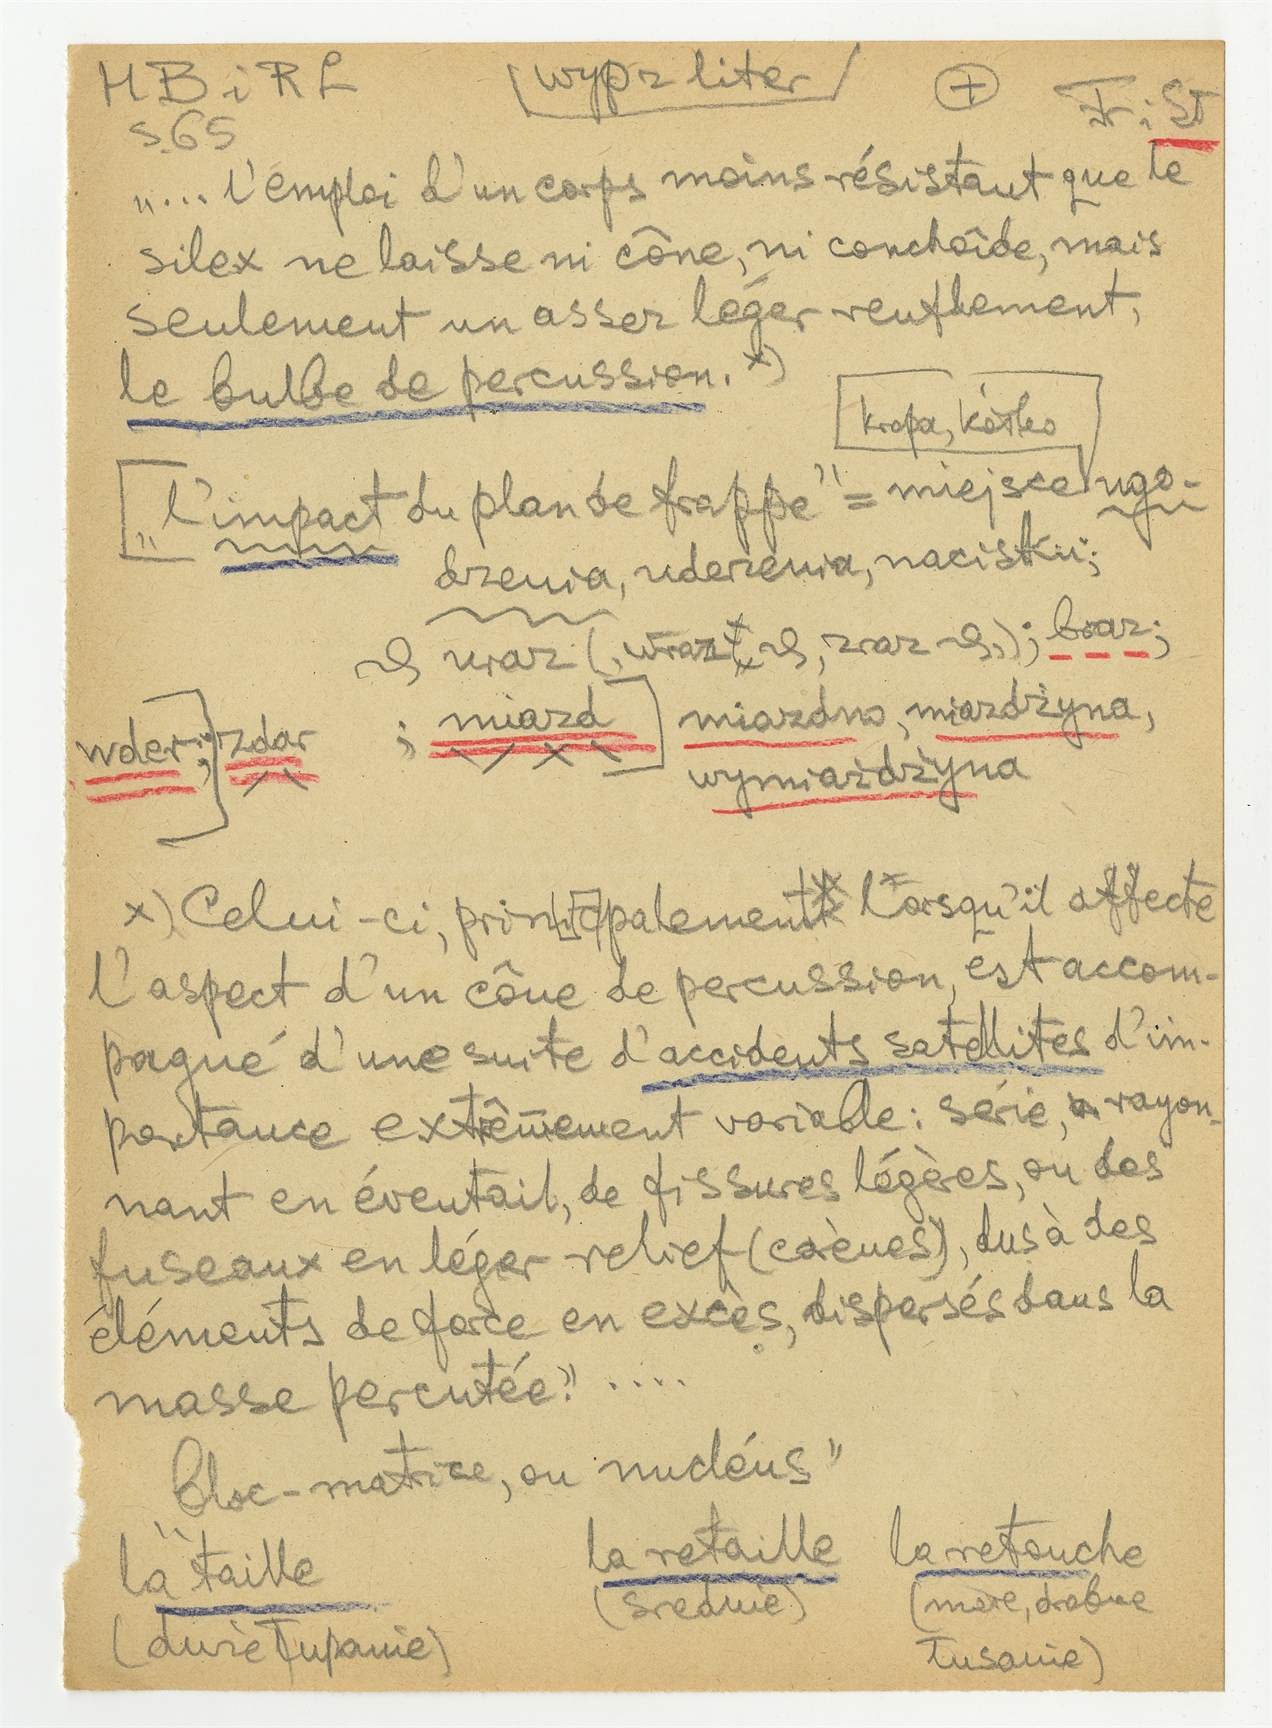 HBiRL wypz liter + Fr i ST
s.65
„.... l'emploi d'un corps moins résistant que le
silex ne laisse ni cône, ni conchoîde, mais
seulement un assez léger renflement,
le bulbe de percussion. x)
kropa, kółko
„l'impact du plan de frappe" = miejsce ugo-
dzenia, uderzenia, nacisku;
uraz (, wraz, zraz); braz;
wder; zdar ; miazd miazdno, miazdżyna,
wymiażdżyna
x) Celui-ci, principalement lorsqu'il affecte
l'aspect d'un cône de percussion, est accom-
pagné d'une suite d'accidents satellites d'im-
portance extrêmement variable: série, rayon-
nant en éventail, de fissures légères, ou des
fuseaux en léger relief (carènes), dus à des
éléments de force en excès, dispersés dans la
masse percutée." ....
Bloc-matrice, ou nucléus"
la taille la retaille la retouche
(duże łupanie) (średnie) (małe, drobne
łusanie)